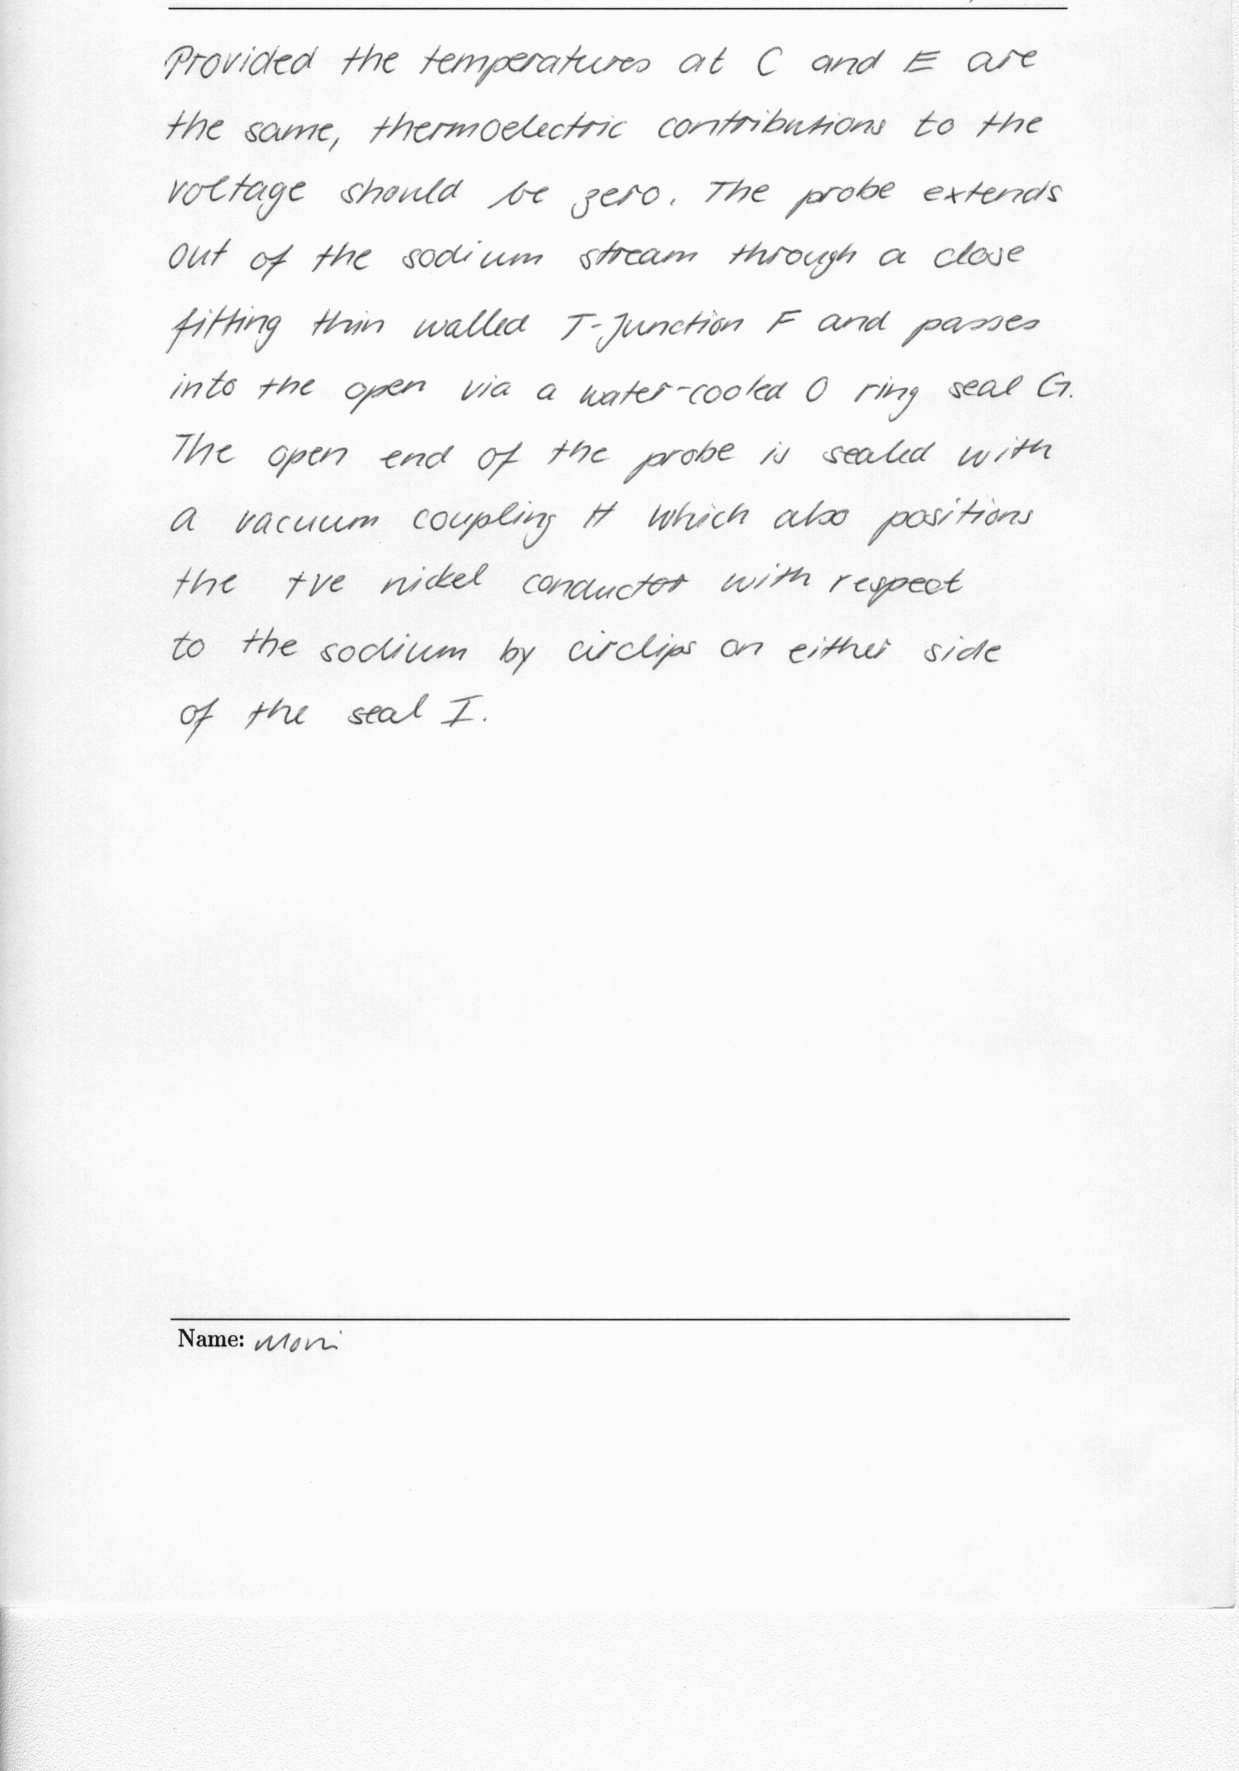 Provided the temperatures at C and E are
the same, thermoelectric contributions to the
voltage should be zero. The probe extends
out of the sodium stream through a close
fitting thin walled T-Junction F and passes
into the open via a water-cooled O ring seal G.
The open end of the probe is sealed with
a vacuum coupling H which also positions
the +ve nickel conductor with respect
to the sodium by circlips on either side
of the seal I.
Name: Moni